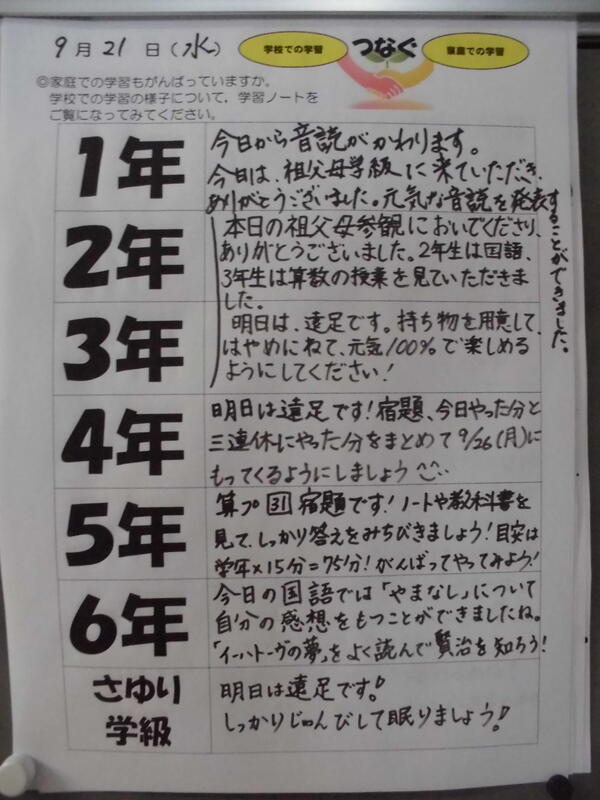 9月21日(水)
学校での学習
つなぐ
家庭での学習
◎家庭での学習もがんばっていますか。
学校での学習の様子について，学習ノートを
ご覧になってみてください。
1年
今日から音読がかわります。
今日は、祖父母学級に来ていただき、
ありがとうございました。元気な音読を発表
することができました。
2年
本日の祖父母参観においでくださり、
ありがとうございました。2年生は国語、
3年生は算数の授業を見ていただきま
した。
3年
明日は、遠足です。持ち物を用意して、
はやめにねて、元気100%で楽しめる
ようにしてください!
4年
明日は遠足です!宿題、今日やった分と
三連休にやった分をまとめて9/26(月)に
もってくるようにしましょう
5年
算プ31宿題です!ノートや教科書を
見て、しっかり答えをみちびきましょう!目安は
学年×15分=75分!がんばってやってみよう!
6年
今日の国語では「やまなし」について
自分の感想をもつことができましたね。
「イーハトーヴの夢」をよく読んで賢治を知ろう!
さゆり
学級
明日は遠足です!
しっかりじゅんびして眠りましょう!